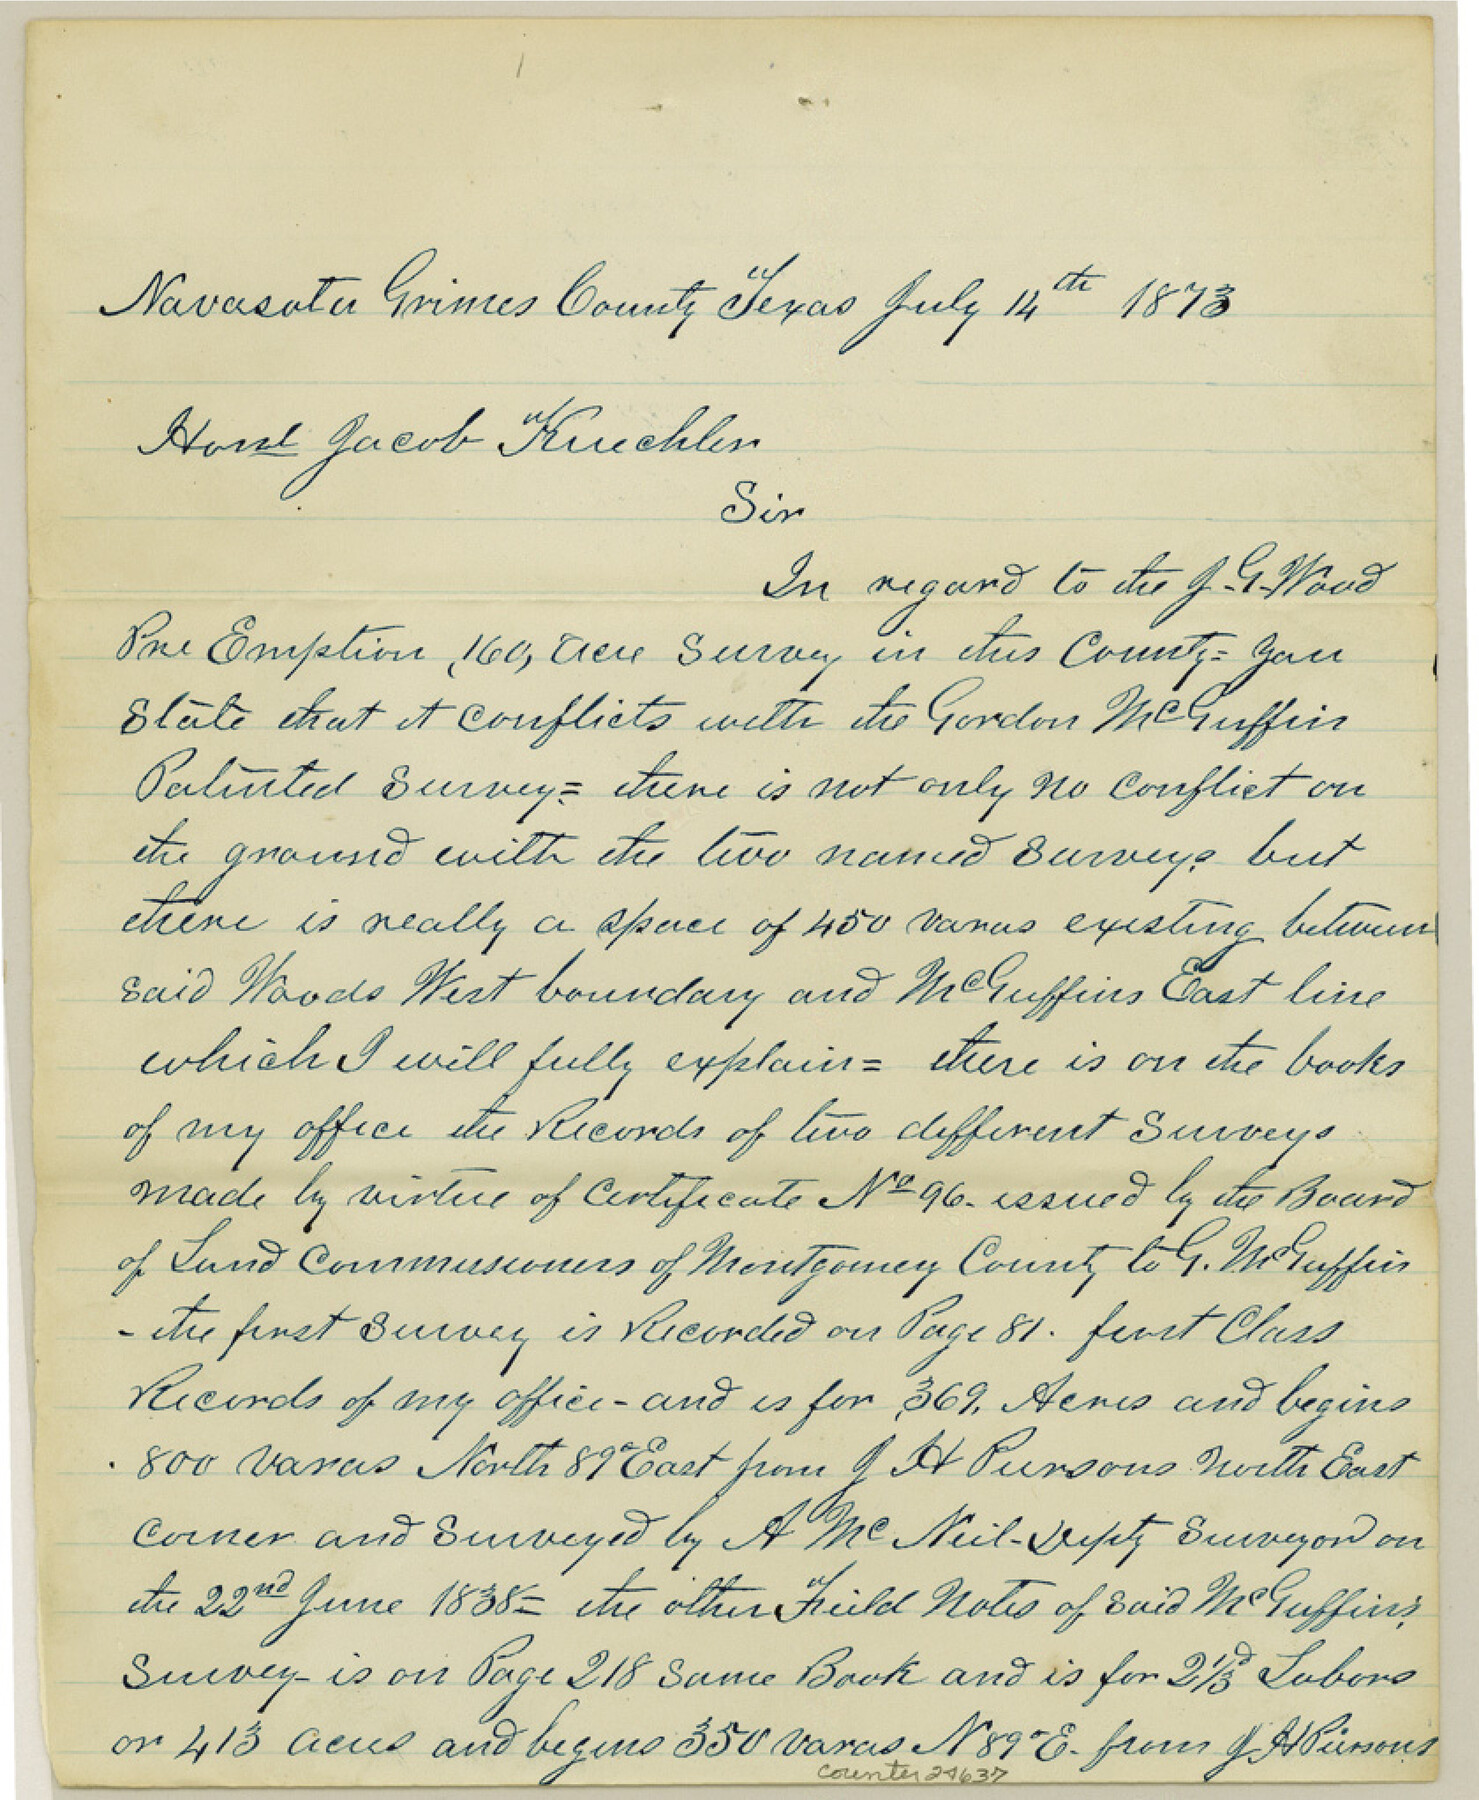 Navasota Grimes County Texas July 14th 1873
Honl Jacob Kuechler
Sir
In regard to the J. G. Wood
Pre Emption, 160, acre Survey in this County = you
State that it conflicts with the Gordon McGuffin
Patented Survey = there is not only no conflict on
the ground with the two named Surveys but
there is really a space of 450 varas existing between
said Woods West boundary and McGuffins East line
which I will fully explain = there is on the books
of my office the Records of two different Surveys
made by virtue of Certificate No 96 - issued by the Board
of Land Commissioners of Montgomery County to G. McGuffin
- the first Survey is Recorded on Page 81. first Class
Records of my office - and is for, 369, Acres and begins
800 varas North 89° East from J H Pursons North East
corner and Surveyed by A McNeil - Depty Surveyor on
the 22nd June 1838 = the other Field Notes of said McGuffin's
Survey - is on Page 218 same Book and is for 2 1/3d Labors
or 413 acres and begins 350 varas N 89° E. from J H Pursons
counter 24637